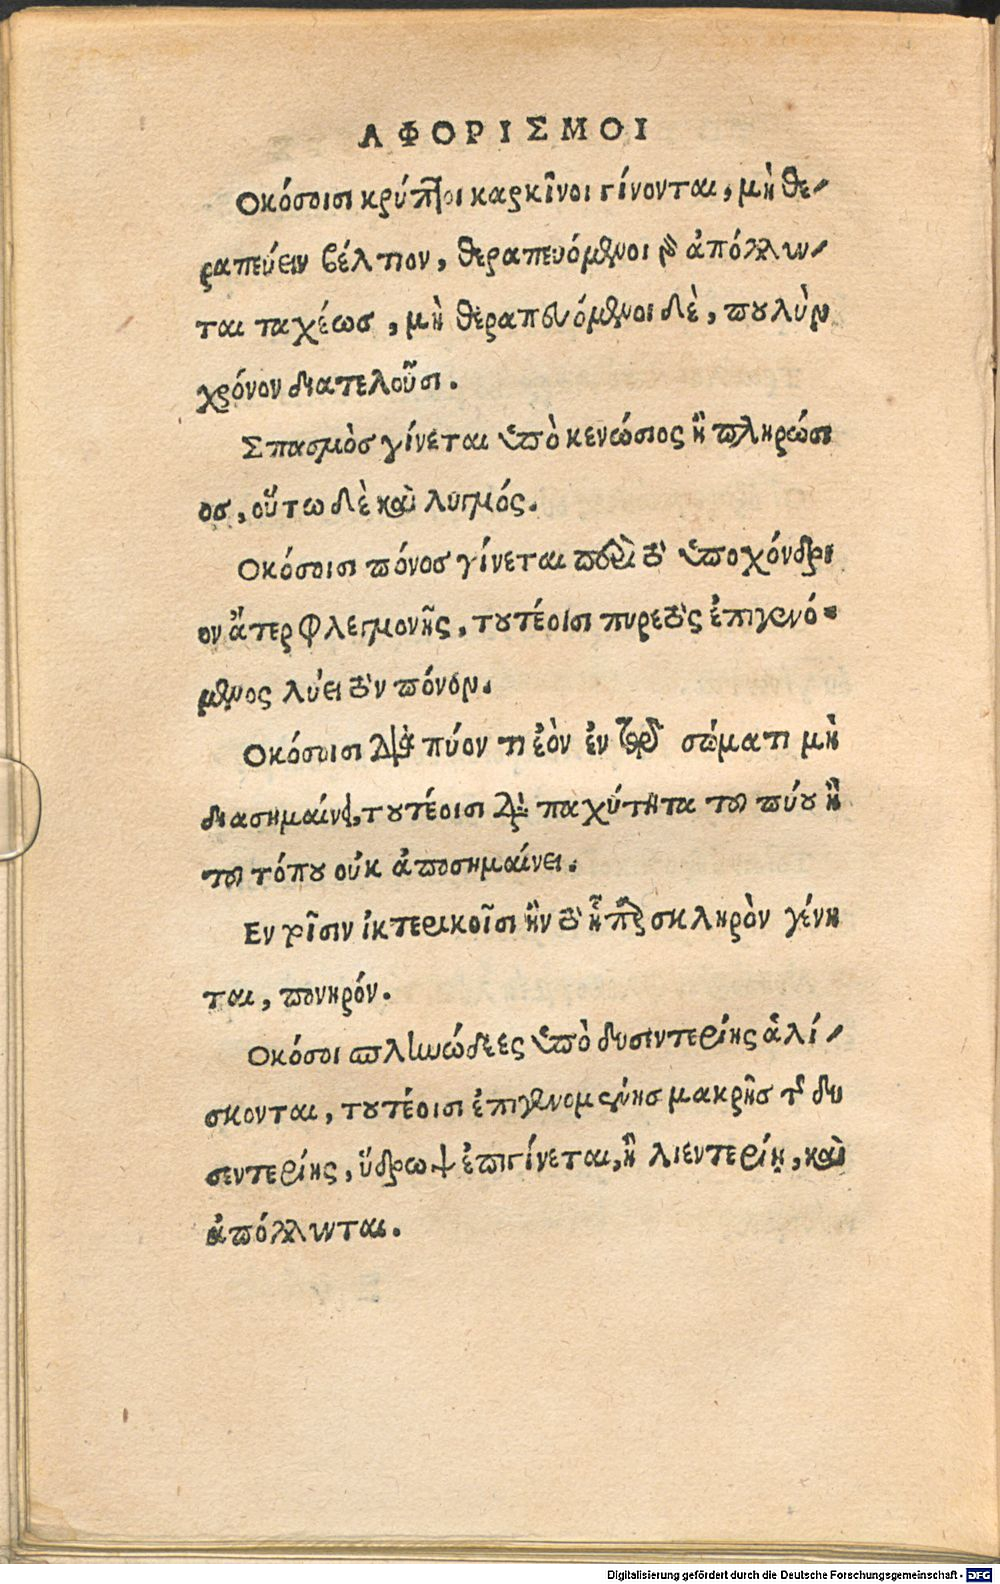 ΑΦΟΡΙΣΜΟΙ
Οκόσοισι κρύπτοι καρκῖνοι γίνονται, μὴ θε-
ραπεύειν βέλτιον, θεραπευόμενοι γὰρ ἀπόλλυν-
ται ταχέως, μὴ θεραπευόμενοι δὲ, πουλὺν
χρόνον διατελοῦσι.
Σπασμὸς γίνεται ὑπὸ κενώσιος ἢ πληρώσι
ος, οὕτω δὲ καὶ λυγμός.
Οκόσοισι πόνος γίνεται περὶ τὸ ὑποχόνδρι
ον ἄτερ φλεγμονῆς, τουτέοισι πυρετὸς ἐπιγενό-
μενος λύει τὸν πόνον.
Οκόσοισι διὰ πύον τι ἐὸν ἐν τῷ σώματι μὴ
διασημαίνῃ, τουτέοισι διὰ παχύτητα τοῦ πύου ἢ
τοῦ τόπου οὐκ ἀποσημαίνει.
Εν τοῖσιν ἰκτερικοῖσι ἢν τὸ ἧπαρ σκληρὸν γένη
ται, πονηρόν.
Οκόσοι σπληνώδεες ὑπὸ δυσεντερίης ἁλί-
σκονται, τουτέοισι ἐπιγενομένης μακρῆς τῆς δυ
σεντερίης, ὕδρωψ ἐπιγίνεται, ἢ λιεντερίη, καὶ
ἀπόλλυνται.
Digitalisierung gefördert durch die Deutsche Forschungsgemeinschaft - DFG